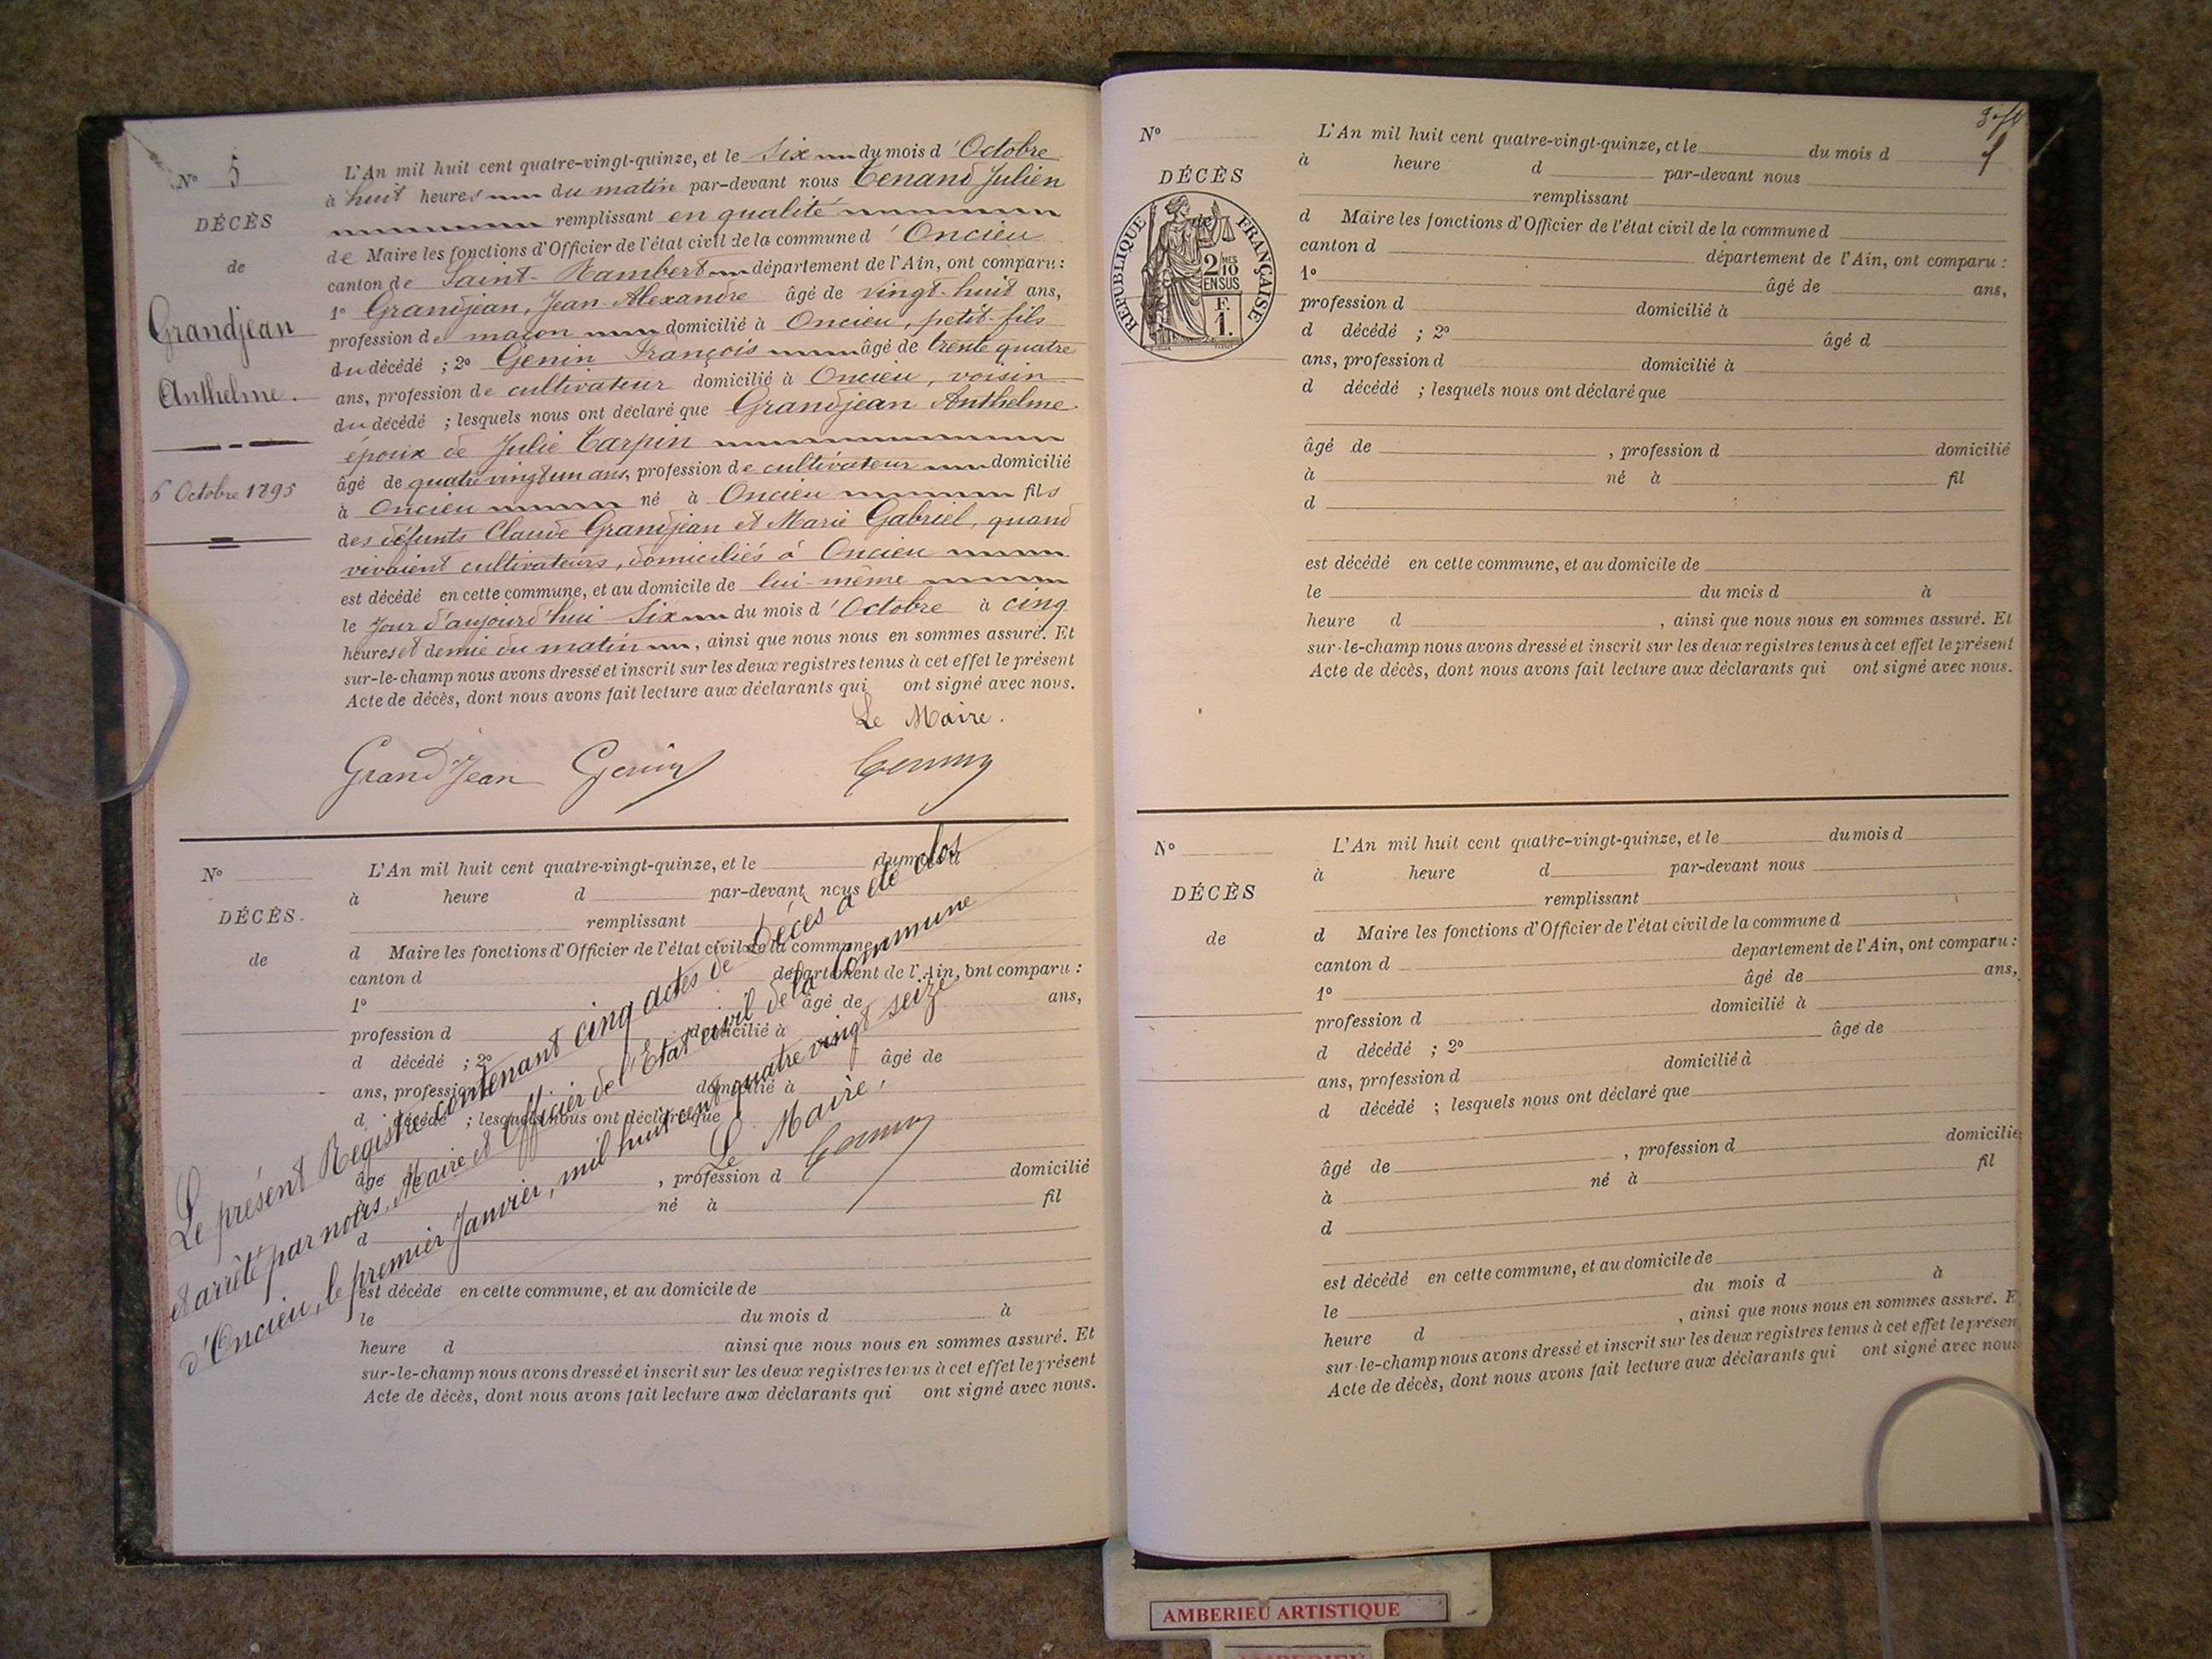 Nº 5
DÉCÈS
de
Grandjean
Anthelme.
6 Octobre 1895
L'An mil huit cent quatre-vingt-quinze, et le Six du mois d'Octobre
à huit heures du matin par-devant nous Tenand Julien
remplissant en qualité
de Maire les fonctions d'Officier de l'état civil de la commune d'Oncieu
canton de Saint-Rambert département de l'Ain, ont comparu :
1º Grandjean, Jean-Alexandre âgé de vingt-huit ans,
profession de maçon domicilié à Oncieu, petit-fils
du décédé ; 2º Genin François âgé de trente quatre
ans, profession de cultivateur domicilié à Oncieu, voisin
du décédé ; lesquels nous ont déclaré que Grandjean Anthelme
époux de Julie Tarpin
âgé de quatre vingt un ans, profession de cultivateur domicilié
à Oncieu né à Oncieu fils
des défunts Claude Grandjean et Marie Gabriel, quand
vivaient cultivateurs, domiciliés à Oncieu
est décédé en cette commune, et au domicile de lui-même
le jour d'aujourd'hui Six du mois d'Octobre à cinq
heures et demie du matin, ainsi que nous nous en sommes assuré. Et
sur-le-champ nous avons dressé et inscrit sur les deux registres tenus à cet effet le présent
Acte de décès, dont nous avons fait lecture aux déclarants qui ont signé avec nous.
Le Maire.
GrandJean Genin Tenand
Nº
DÉCÈS
de
L'An mil huit cent quatre-vingt-quinze, et le du mois d
à heure d par-devant nous
remplissant
d Maire les fonctions d'Officier de l'état civil de la commune
canton d département de l'Ain, ont comparu :
1º âgé de ans,
profession d domicilié à
d décédé ; 2º âgé de
ans, profession domicilié à
d décédé ; lesquels nous ont déclaré que
âgé de , profession d domicilié
à né à fil
d
est décédé en cette commune, et au domicile de
le du mois d à
heure d ainsi que nous nous en sommes assuré. Et
sur-le-champ nous avons dressé et inscrit sur les deux registres tenus à cet effet le présent
Acte de décès, dont nous avons fait lecture aux déclarants qui ont signé avec nous.
Le présent Registre contenant cinq actes de Décès a été clos
et arrêté par nous, Maire et Officier de l'Etat civil de la Commune
d'Oncieu, le premier Janvier, mil huit cent quatre vingt seize
Le Maire,
Tenand
Nº
DÉCÈS
de
RÉPUBLIQUE FRANÇAISE
2/10 MES
EN SUS
F.
1.
L'An mil huit cent quatre-vingt-quinze, et le du mois d
à heure d par-devant nous
remplissant
d Maire les fonctions d'Officier de l'état civil de la commune d
canton d département de l'Ain, ont comparu :
1º âgé de ans,
profession d domicilié à
d décédé ; 2º âgé d
ans, profession d domicilié à
d décédé ; lesquels nous ont déclaré que
âgé de , profession d domicilié
à né à fil
d
est décédé en cette commune, et au domicile de
le du mois d à
heure d , ainsi que nous nous en sommes assuré. Et
sur-le-champ nous avons dressé et inscrit sur les deux registres tenus à cet effet le présent
Acte de décès, dont nous avons fait lecture aux déclarants qui ont signé avec nous.
Nº
DÉCÈS
de
L'An mil huit cent quatre-vingt-quinze, et le du mois d
à heure d par-devant nous
remplissant
d Maire les fonctions d'Officier de l'état civil de la commune d
canton d departement de l'Ain, ont comparu :
1º âgé de ans,
profession d domicilié à
d décédé ; 2º âgé de
ans, profession d domicilié à
d décédé ; lesquels nous ont déclaré que
âgé de , profession d domicilié
à né à fil
d
est décédé en cette commune, et au domicile de
le du mois d à
heure d , ainsi que nous nous en sommes assuré. E
sur-le-champ nous avons dressé et inscrit sur les deux registres tenus à cet effet le présen
Acte de décès, dont nous avons fait lecture aux déclarants qui ont signé avec nous
AMBERIEU ARTISTIQUE
AMBERIEU